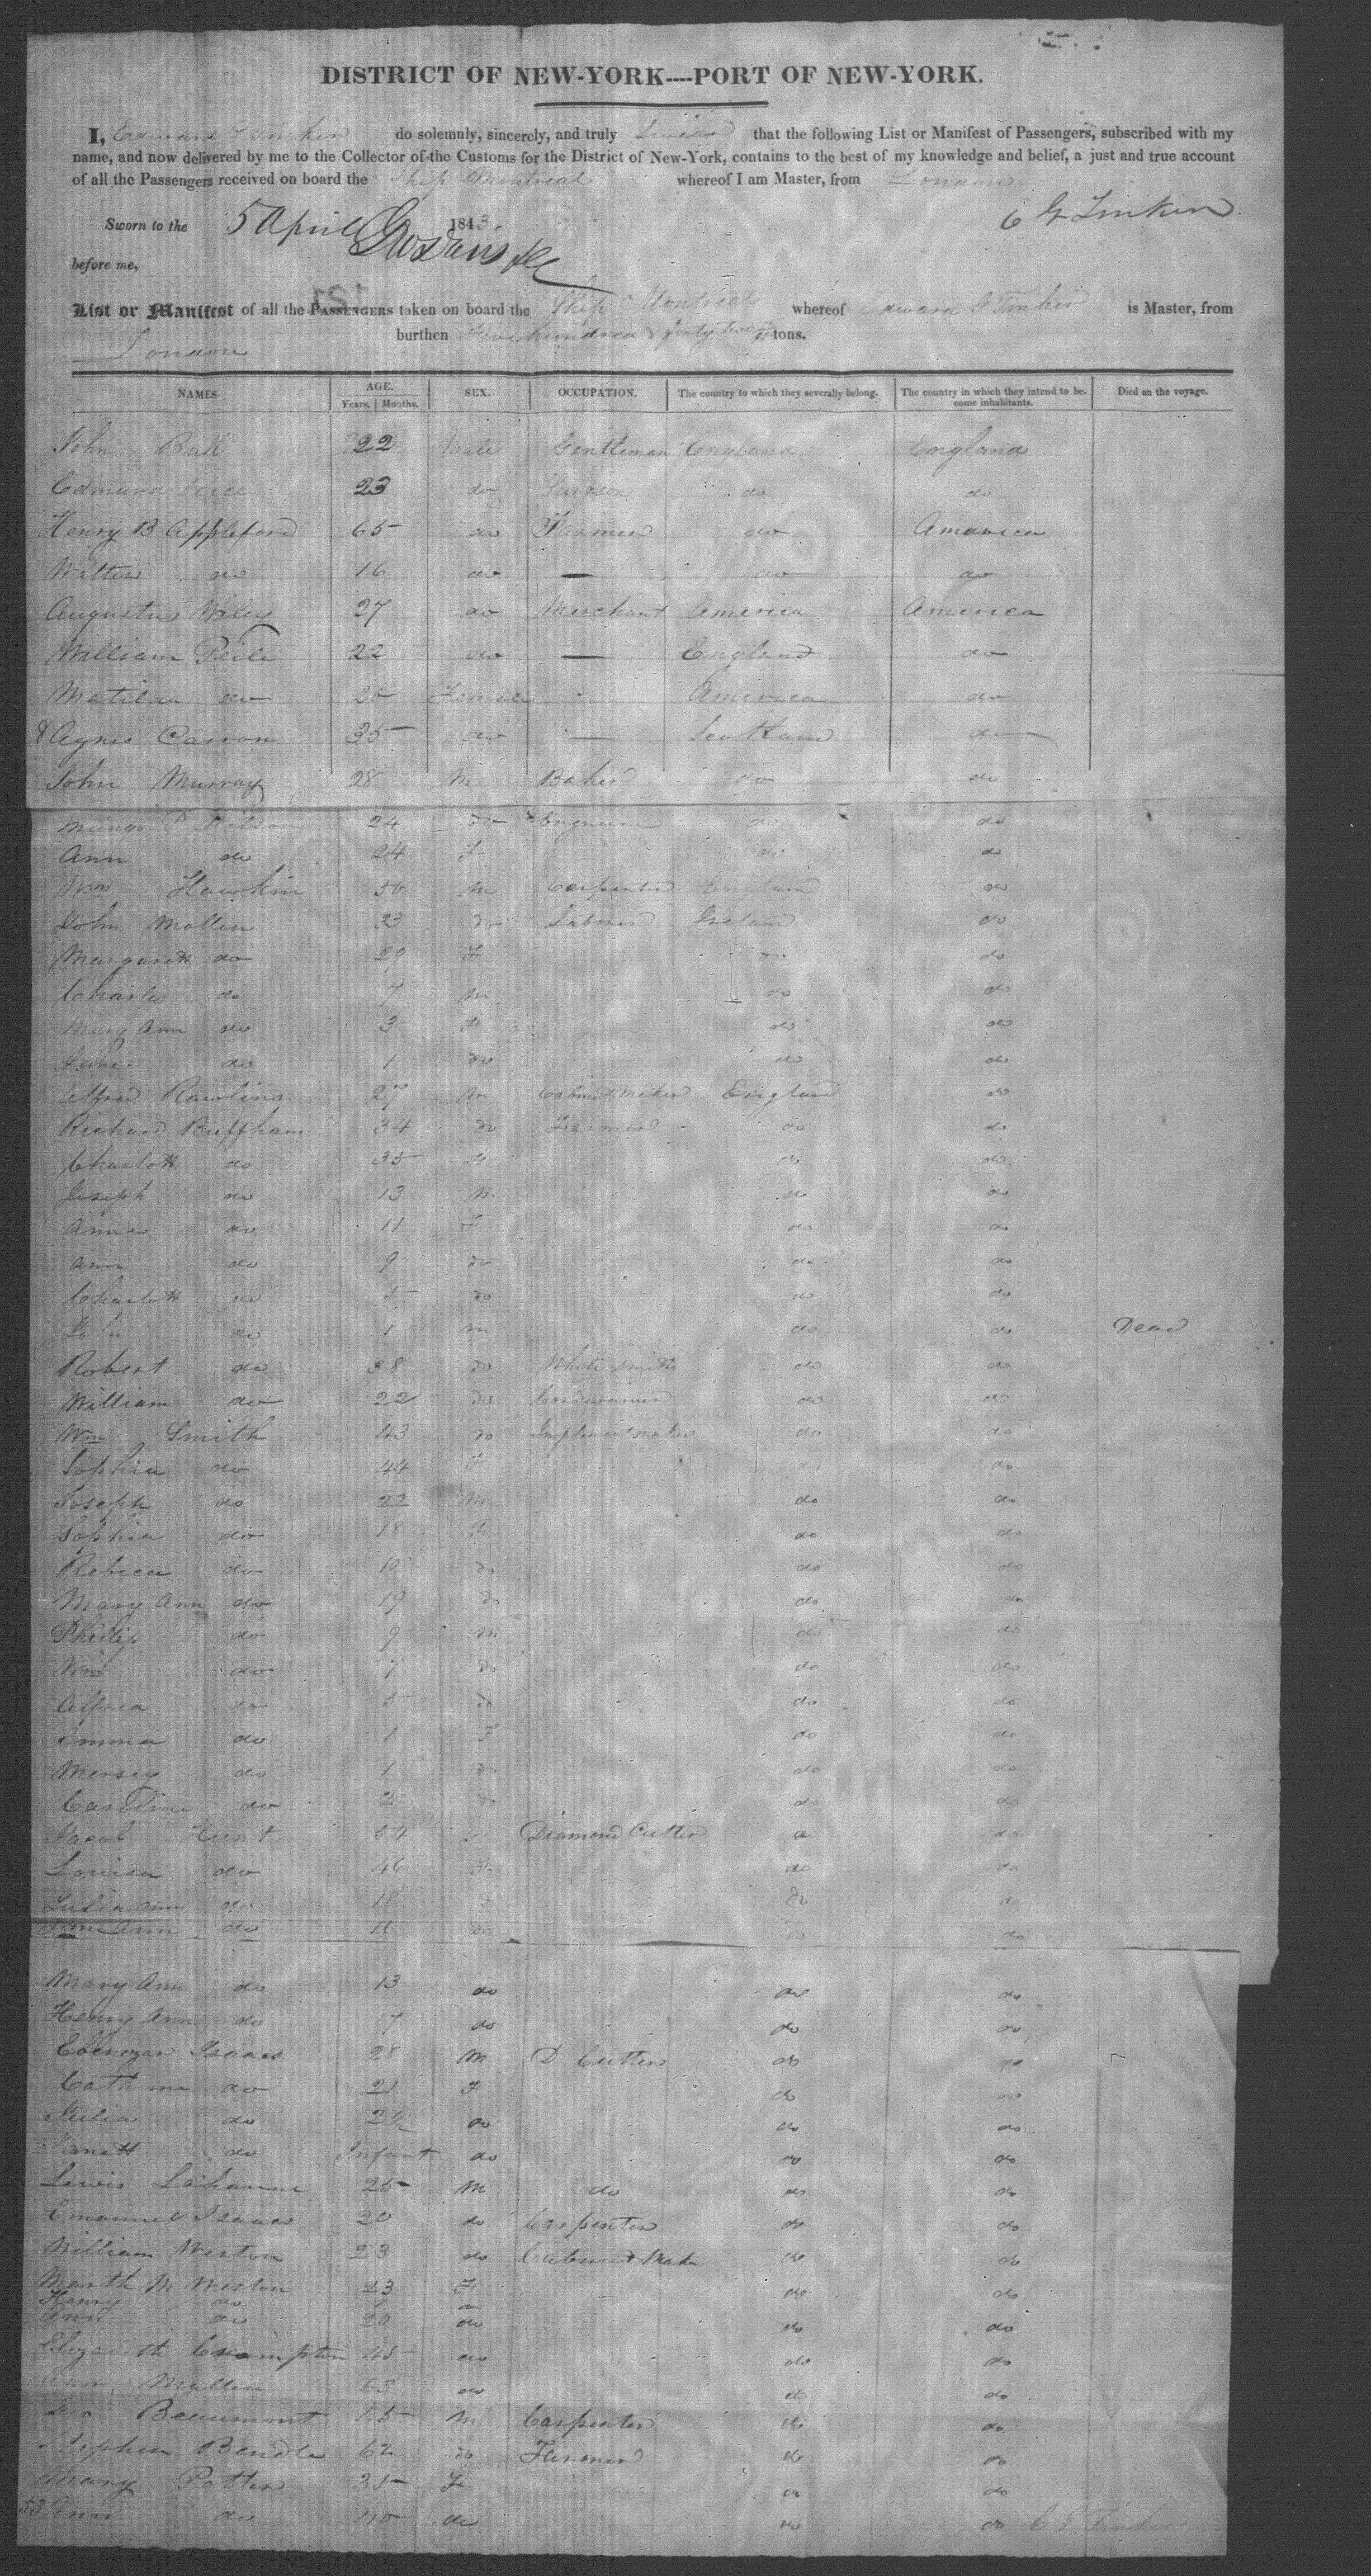 DISTRICT OF NEW-YORK----PORT OF NEW-YORK.
I, Edward G Tinker do solemnly, sincerely, and truly Swear that the following List or Manifest of Passengers, subscribed with my
name, and now delivered by me to the Collector of the Customs for the District of New-York, contains to the best of my knowledge and belief, a just and true account
of all the Passengers received on board the Ship Montreal whereof I am Master, from London
Sworn to the 5 April 1843. E G Tinker
before me,
List or Manifest of all the PASSENGERS taken on board the Ship Montreal whereof Edward G Tinker is Master, from
London burthen Five hundred & forty two tons.
NAMES. AGE. Years. Months. SEX. OCCUPATION. The country to which they severally belong. The country in which they intend to become inhabitants. Died on the voyage.
John Bull 22 Male Gentleman England England
Edmund Rice 23 do Surgeon do do
Henry B Appleford 65 do Farmer do Amarica
Walter do 16 do — do do
Augustus Wiley 27 do Merchant America America
William Peile 22 do — England do
Matilda do 20 Female America do
8 Agnes Carron 35 do — Scotland do
John Murray 28 M Baker do do
Mungo P Wilson 24 do Engineer do do
Ann do 24 F do do
Wm Hawkin 50 M Carpenter England do
John Mollen 33 do Laborer Ireland do
Margarett do 29 F do do
Charles do 7 M do do
Mary Ann do 3 F do do
Jane do 1 do do do
Alfred Rawlins 27 M Cabinet Maker England do
Richard Buffham 34 do Farmer do do
Charlott do 35 F do do
Joseph do 13 M do do
Anna do 11 F do do
Ann do 9 do do do
Charlott do 5 do do do
John do 1 M do do Dead
Robert do 38 do White smith do do
William do 22 do Cordwainer do do
Wm Smith 43 do Implement maker do do
Sophia do 44 F do do
Joseph do 22 M do do
Sophia do 18 F do do
Rebeca do 10 do do do
Mary Ann do 19 do do do
Phillip do 9 M do do
Wm do 7 do do do
Alfred do 5 do do do
Emma do 1 F do do
Mersey do 1 do do do
Caroline do 2 do do do
Jacob Hunt 54 Diamond Cutter do do
Louisa do 46 F do do
Julia Ann do 18 do do do
Jane Ann do 16 do do do
Mary Ann do 13 do do do
Henry Ann do 17 do do do
Ebenezar Isaacs 28 M D Cutter do do
Cathrine do 21 F do do
Julia do 2½ do do do
Janett do Infant do do do
Lewis 25 M do do do
Emanuel Isaacs 20 do Carpenter do do
William Weston 23 do Cabinet Maker do do
Marth M Weston 23 F do do
Henry do
Ann do 20 do do do
Elizabeth Crampton 45 do do do
Ann Mullen 63 do do do
Beaumont M Carpenter do do
Stephen Bendle 62 do Farmer do do
Mary Potter 35 F do do
53 Ann do 40 do do do E G Tinker